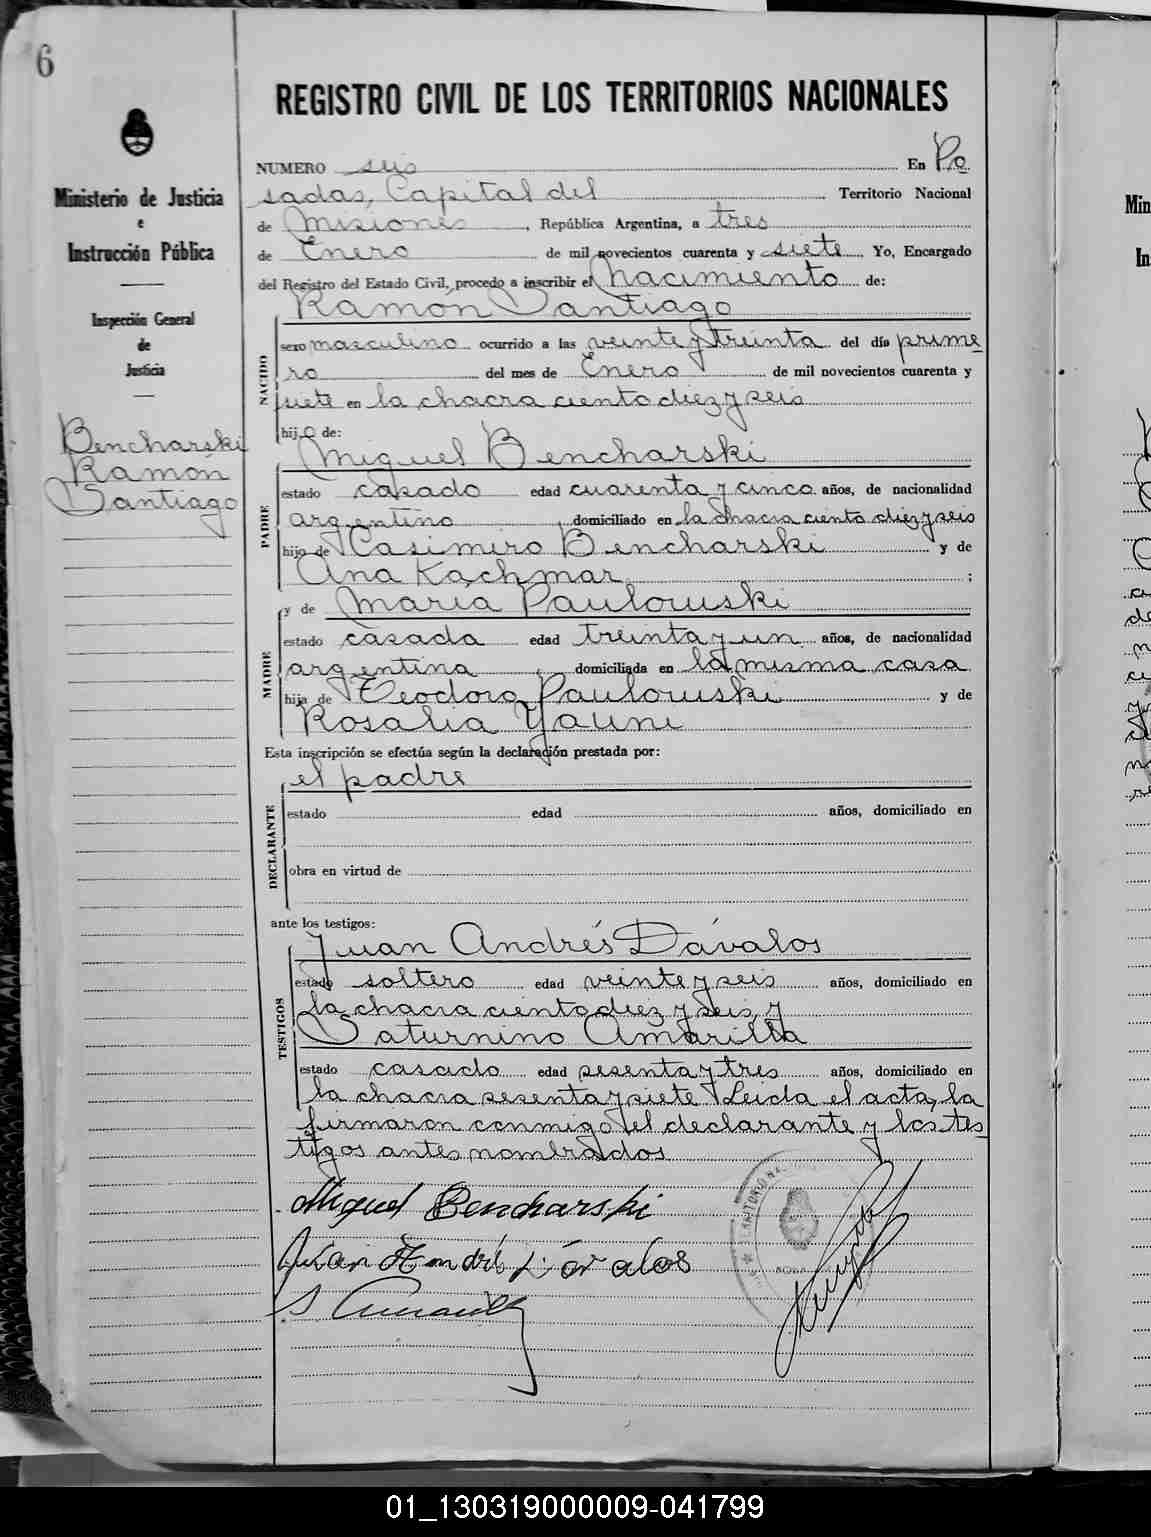 6
REGISTRO CIVIL DE LOS TERRITORIOS NACIONALES
Ministerio de Justicia
e
Instrucción Pública
Inspección General
de
Justicia
Bencharski
Ramón
Santiago
NUMERO seis En Po
sadas, Capital del Territorio Nacional
de Misiones, República Argentina, a tres
de Enero de mil novecientos cuarenta y siete Yo, Encargado
del Registro del Estado Civil, procedo a inscribir el Nacimiento de:
Ramón Santiago
NACIDO
sexo masculino ocurrido a las veinte y treinta del día prime
ro del mes de Enero de mil novecientos cuarenta y
siete en la chacra ciento diez y seis
hijo de:
Miguel Bencharski
PADRE
estado casado edad cuarenta y cinco años, de nacionalidad
argentino, domiciliado en la chacra ciento diez y seis
hijo de Casimiro Bencharski y de
Ana Kachmar;
y de María Paulowski
MADRE
estado casada edad treinta y un años, de nacionalidad
argentina, domiciliada en la misma casa
hija de Teodoro Paulowski y de
Rosalia Yauni
Esta inscripción se efectúa según la declaración prestada por:
el padre
DECLARANTE
estado edad años, domiciliado en
obra en virtud de
ante los testigos:
Juan Andrés Dávalos
TESTIGOS
estado soltero edad veinte y seis años, domiciliado en
la chacra ciento diez y seis, y
Saturnino Amarilla
estado casado edad sesenta y tres años, domiciliado en
la chacra sesenta y siete Leida el acta, la
firmaron conmigo el declarante y los tes
tigos antes nombrados
Miguel Bencharski
Juan Andrés Dávalos
S Amarilla
Min
In
01_130319000009-041799